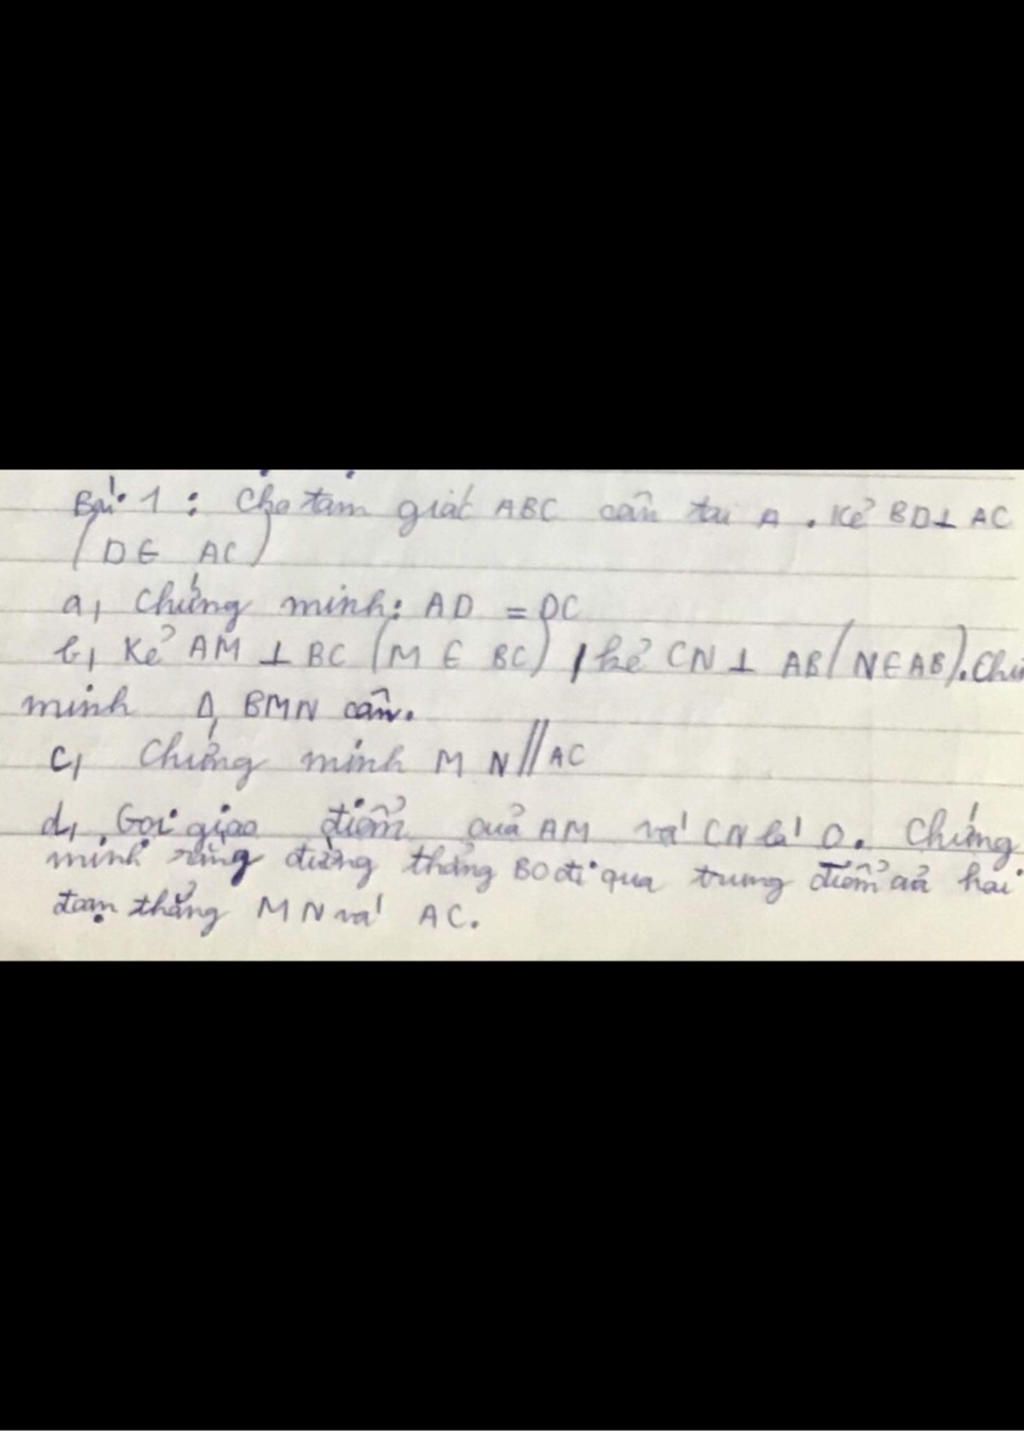 Bài 1 : Cho tam giác ABC cân tại A . Kẻ BD⊥ AC
(D∈ AC)
a, Chứng minh: AD = DC
b, Kẻ AM ⊥ BC (M ∈ BC) , kẻ CN ⊥ AB (N∈AB). Chứ
minh Δ BMN cân.
c, Chứng minh MN // AC
d, Gọi giao điểm của AM và CN là O. Chứng
minh rằng đường thẳng BO đi qua trung điểm của hai
đoạn thẳng MN và AC.